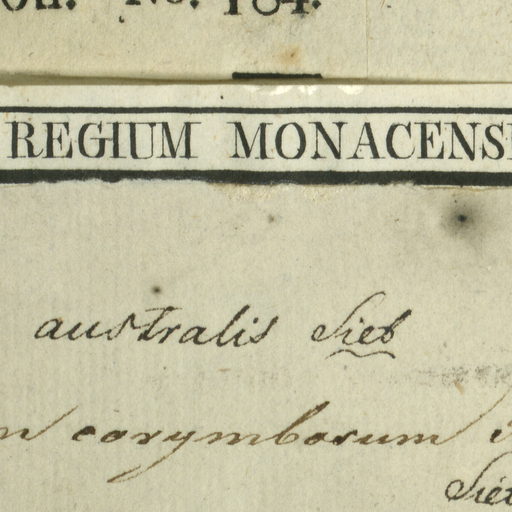 No. 184.
REGIUM MONACENS
australis Sieb
m corymbosum
Sieb